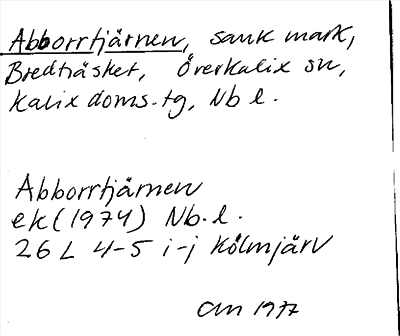 Abborrtjärnen, sank mark,
Bredträsket, Överkalix sn,
Kalix doms. tg, Nb l.
Abborrtjärnen
ek (1974) Nb. l.
26 L 4-5 i-j Kölmjärv
1977